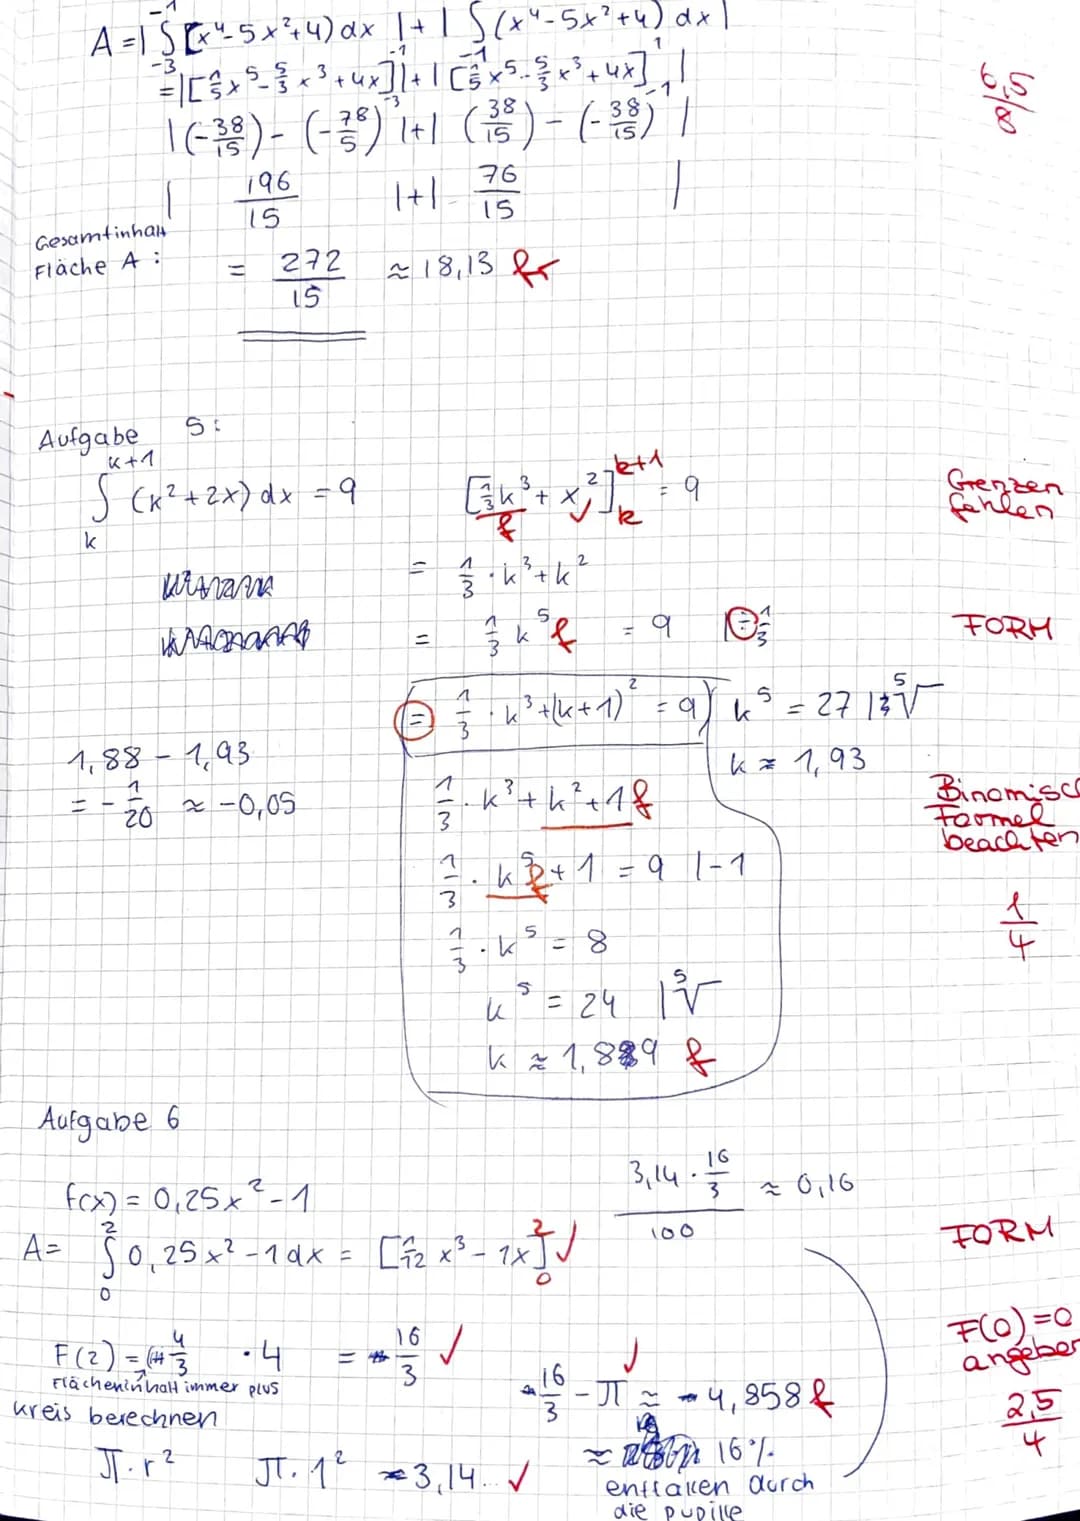 A = | ∫₋₃⁻¹ (x⁴-5x²+4) dx | + | ∫₋₁ (x⁴-5x²+4) dx |
= | [1/5 x⁵ - 5/3 x³ + 4x]₋₃⁻¹ | + | [1/5 x⁵ - 5/3 x³ + 4x]₋₁¹ |
6,5/8
| (-38/15) - (-78/5) | + | (38/15) - (-38/15) |
| 196/15 | + | 76/15 |
Gesamtinhalt
Fläche A : = 272/15 ≈ 18,13 fr
Aufgabe 5:
∫ₖᵏ⁺¹ (k²+2x) dx = 9 [1/3 k³ + x²]ₖᵏ⁺¹ = 9
f ✓
Grenzen
fehlen
= 1/3 · k³ + k²
= 1/3 k⁵ f = 9 | : 1/3
FORM
= 1/3 · k³ + (k+1)² = 9 k⁵ = 27 | ⁵√
1,88 - 1,93 k ≈ 1,93
= - 1/20 ≈ -0,05 1/3 · k³ + k² + 1 f
Formel
beachten
1/3 · k⁵ f + 1 = 9 | -1
1/4
1/3 · k⁵ = 8
k⁵ = 24 | ⁵√
k ≈ 1,889 f
Aufgabe 6
f(x) = 0,25x² - 1 3,14 · 16/3 / 100 ≈ 0,16
A = ∫₀² 0,25x² - 1 dx = [1/12 x³ - 1x]₀² ✓
FORM
F(2) = 4/3 · 4 = 16/3 ✓
F(0)=0
angeben
Flächeninhalt immer plus
16/3 - π ≈ 4,858 f ✓
2,5/4
Kreis berechnen
≈ 16%
π · r² π · 1² ≈ 3,14.. ✓
entfallen durch
die pupille